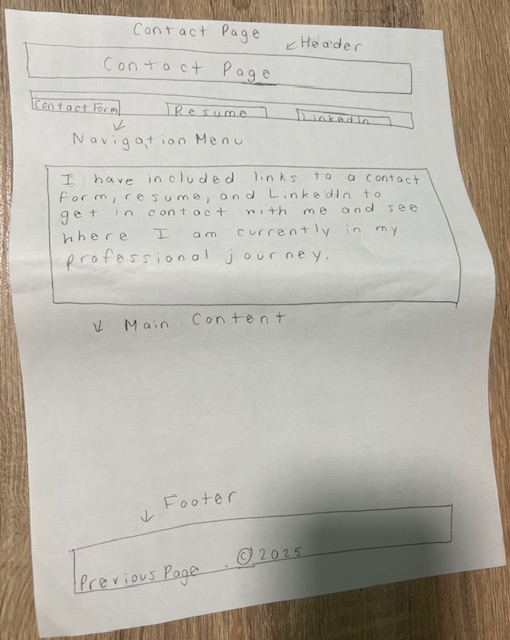 Contact Page
Header
Contact Page
Contact Form Resume LinkedIn
Navigation Menu
I have included links to a contact
form, resume, and LinkedIn to
get in contact with me and see
where I am currently in my
professional journey.
Main Content
Footer
Previous Page © 2025